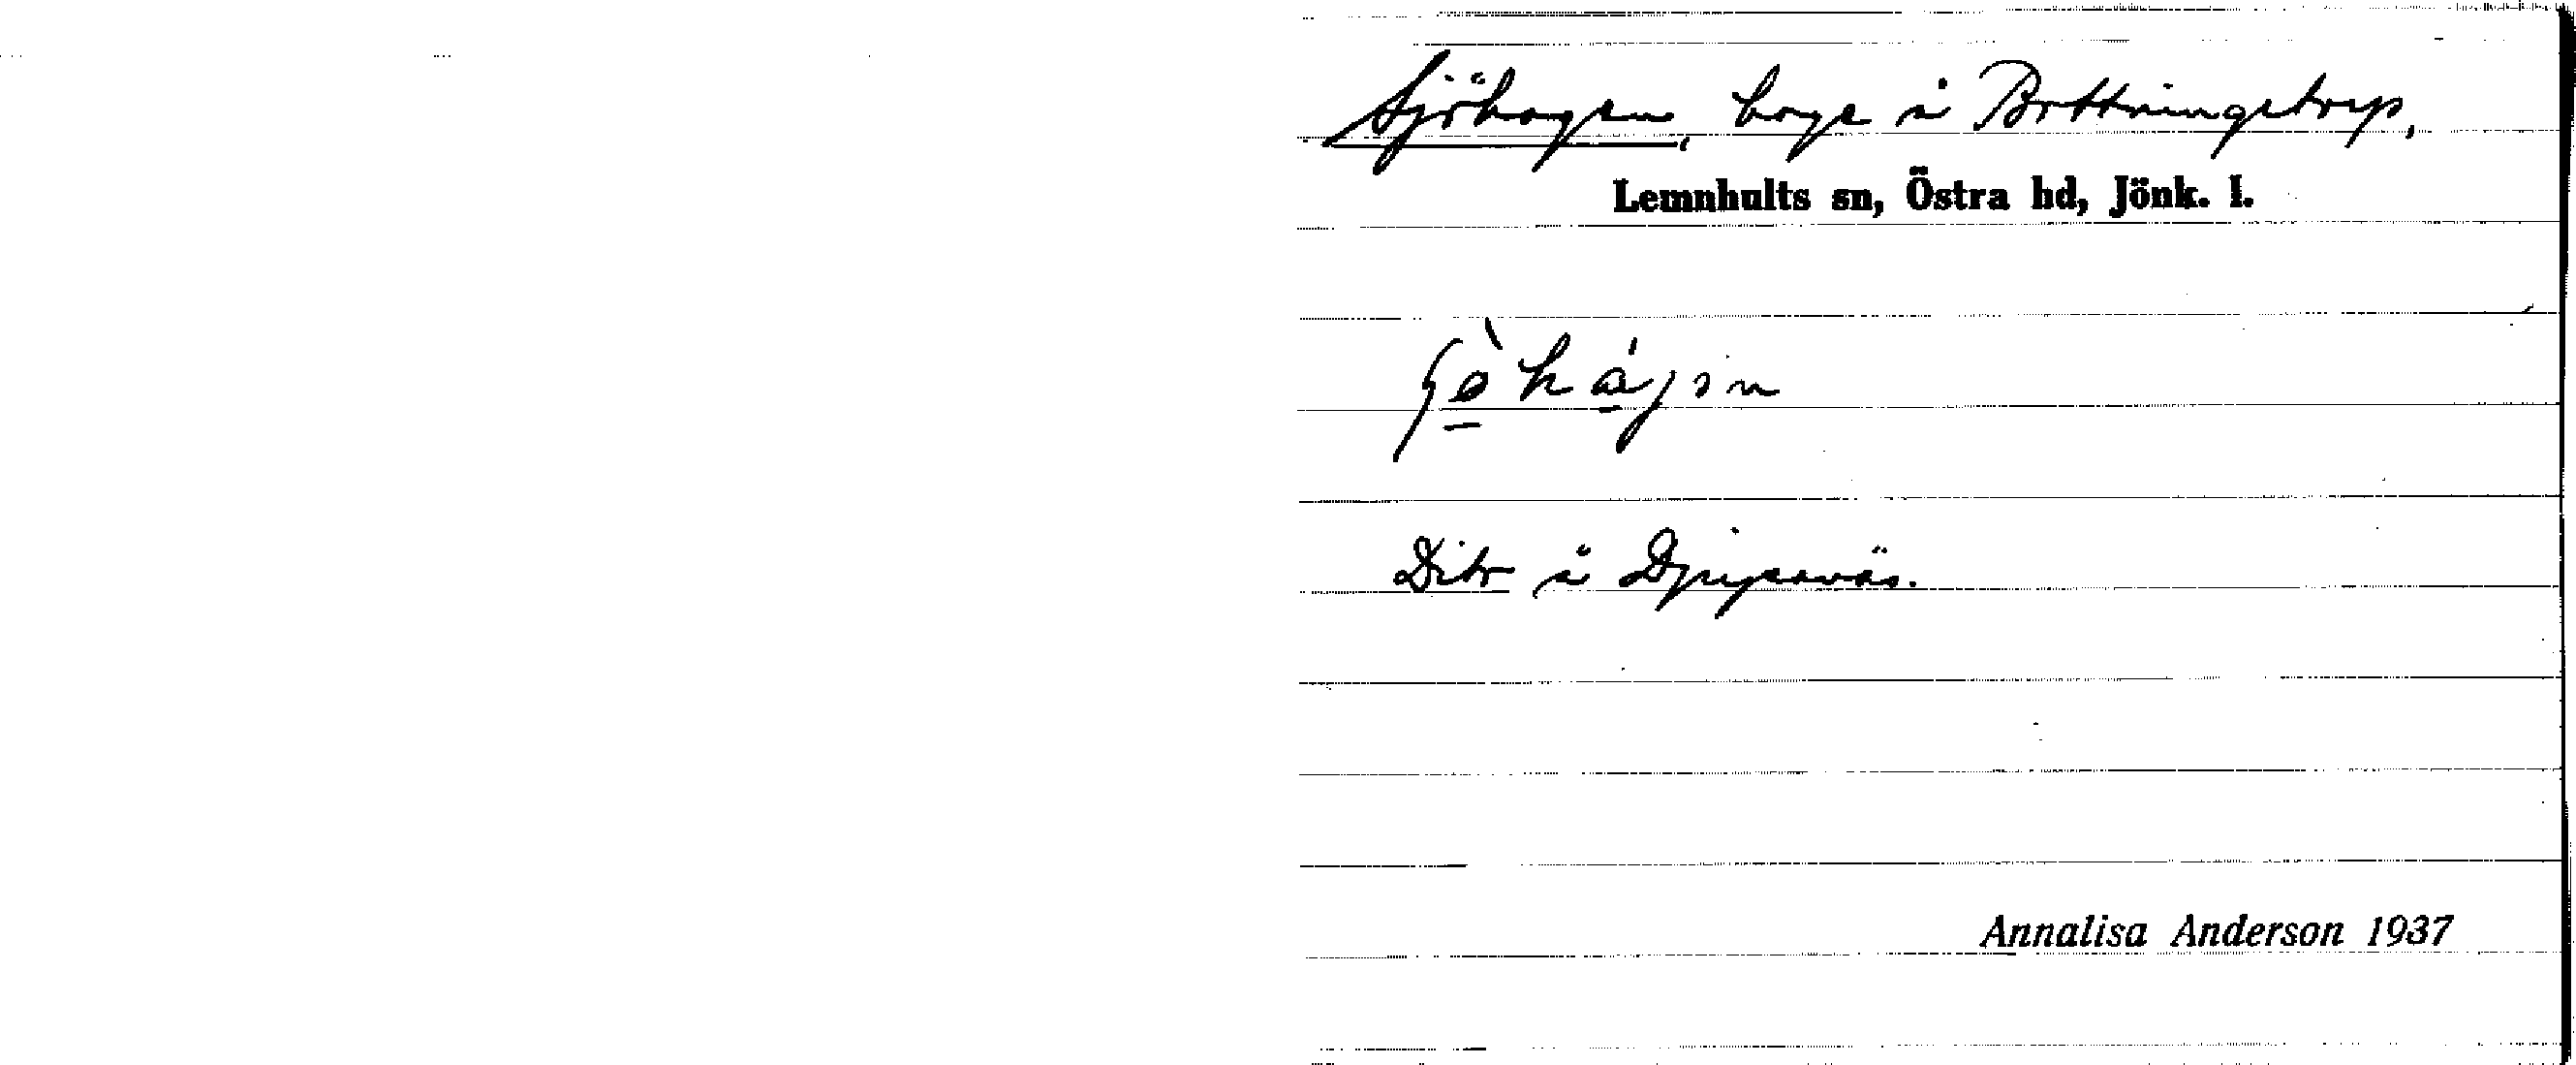 Sjöhagen, hage å Brttringstorp,
Lemnhults sn, Östra hd, Jönk. l.
Dito å Djupsnäs.
Annalisa Anderson 1937